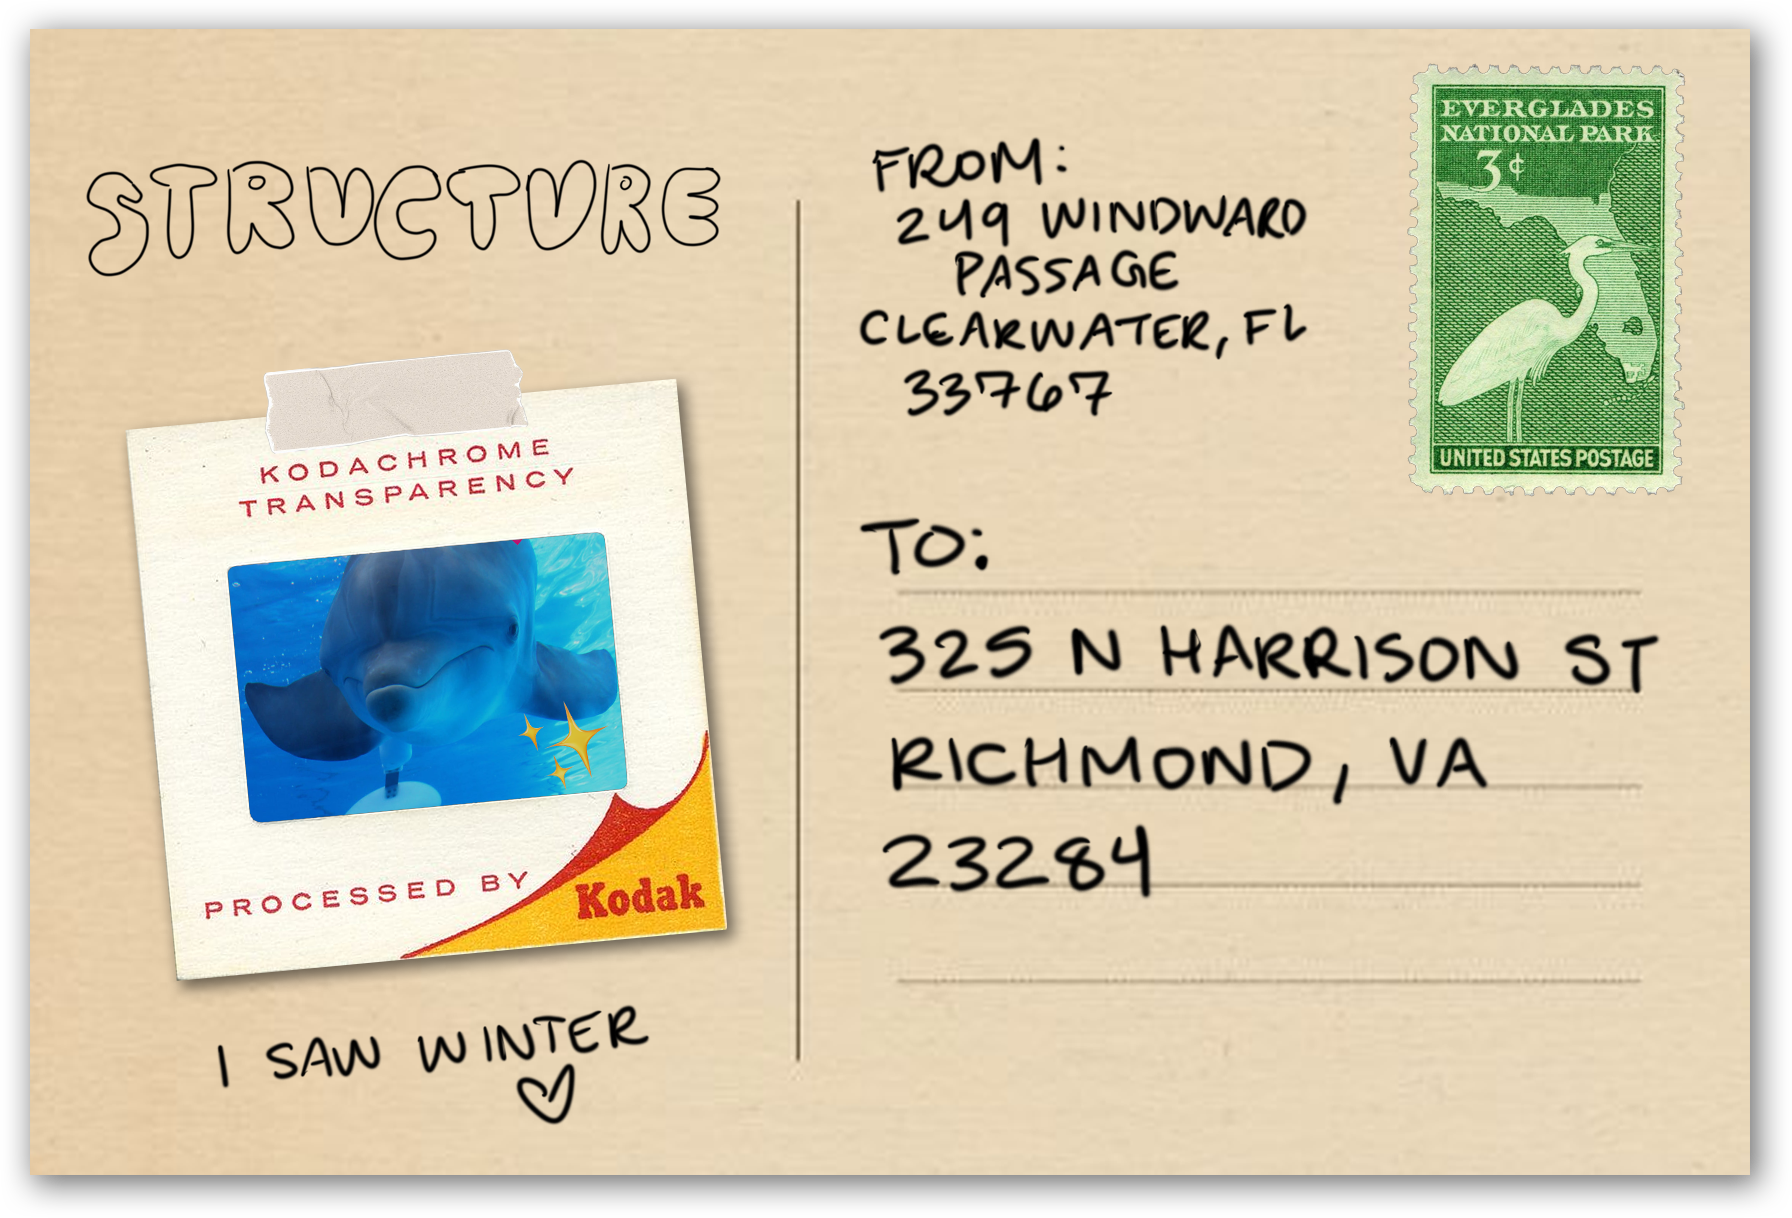 STRUCTURE
KODACHROME
TRANSPARENCY
PROCESSED BY
Kodak
I SAW WINTER
FROM:
249 WINDWARD
PASSAGE
CLEARWATER, FL
33767
EVERGLADES
NATIONAL PARK
3¢
UNITED STATES POSTAGE
TO:
325 N HARRISON ST
RICHMOND, VA
23284